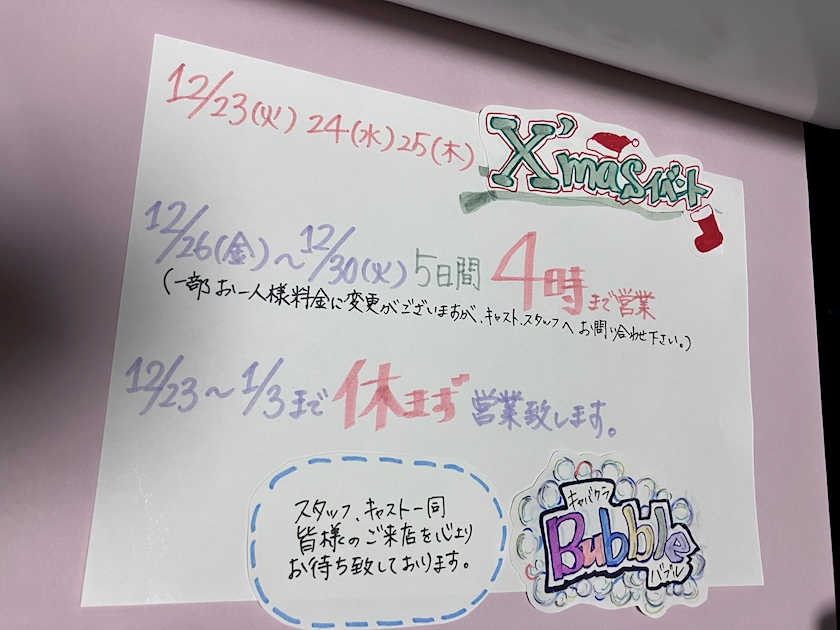 12/23(火) 24(水) 25(木) X'masイベント
12/26(金)～12/30(火) 5日間 4時まで営業
(一部お一人様料金に変更がございますが、キャスト、スタッフへお問い合わせ下さい。)
12/23～1/3まで休まず営業致します。
スタッフ、キャスト一同
皆様のご来店を心より
お待ち致しております。
キャバクラ
Bubble
バブル